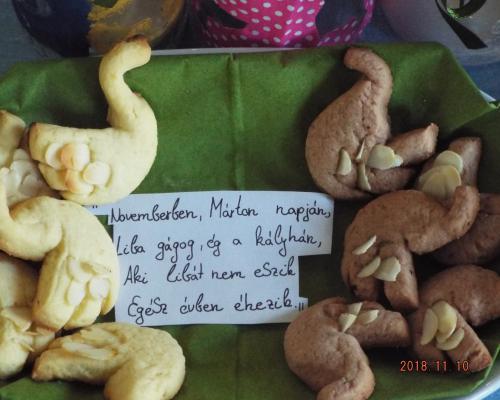 „Novemberben, Márton napján,
Liba gágog, ég a kályhán,
Aki libát nem eszik
Egész évben éhezik."
2018.11.10